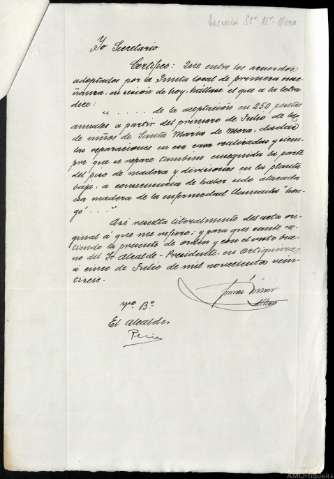 Escuela Sta. Mª. Mera
Yo Secretario
Certifico: Que entre los acuerdos
adoptados por la Junta local de primera ense-
ñanza, en sesión de hoy, hállase el que a la letra
dice:
"..... de la aceptación en 250 pesetas
anuales a partir del primero de Julio de la de
de niños de Santa María de Mera, dadas
las reparaciones en esa casa realizadas y siem-
pre que se repare tambien enseguida la parte
del piso de madera y divisiones en la planta
baja, a consecuencia de haber sido atacada
su madera de la enfermedad llamada "hon-
go" ....."
Así resulta literalmente del acta ori-
ginal a que me refiero; y para que conste ex-
tiendo la presente de orden y con el visto bue-
no del Sr. Alcalde-Presidente, en Ortigueira
a cinco de Julio de mil novecientos vein-
Vº. Bº.
El Alcalde